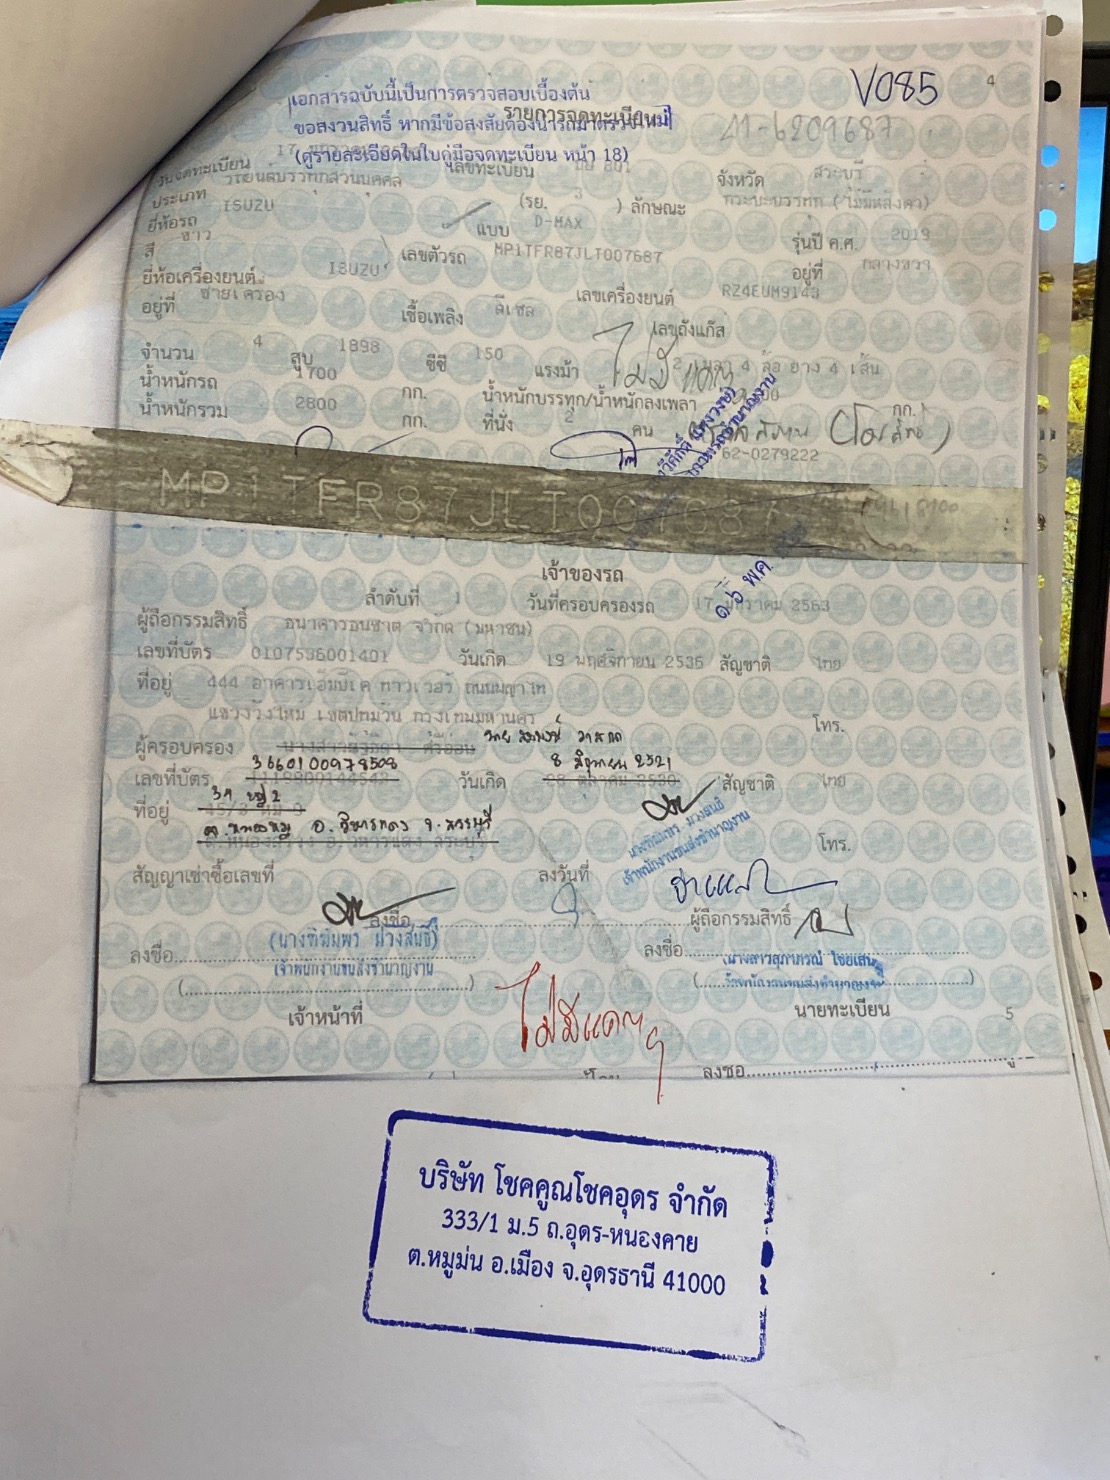 V085
4
เอกสารฉบับนี้เป็นการตรวจสอบเบื้องต้น
รายการจดทะเบียน
ขอสงวนสิทธิ์ หากมีข้อสงสัยต้องนำรถมาตรวจใหม่
41-6209687
(ดูรายละเอียดในใบคู่มือจดทะเบียน หน้า 18)
วันจดทะเบียน 17 เลขทะเบียน จังหวัด สระบุรี
ประเภท รถยนต์บรรทุกส่วนบุคคล (รย. 3 ) ลักษณะ กระบะบรรทุก (ไม่มีหลังคา)
ยี่ห้อรถ ISUZU แบบ D-MAX รุ่นปี ค.ศ. 2019
สี ขาว เลขตัวรถ MP1TFR87JLT007687 อยู่ที่ กลางขวา
ยี่ห้อเครื่องยนต์ ISUZU เลขเครื่องยนต์ RZ4EUM9143
อยู่ที่ ซ้ายเครื่อง เชื้อเพลิง ดีเซล เลขถังแก๊ส
จำนวน 4 สูบ 1898 ซีซี 150 แรงม้า 2 เพลา 4 ล้อ ยาง 4 เส้น
น้ำหนักรถ 1700 กก. น้ำหนักบรรทุก/น้ำหนักลงเพลา กก.
น้ำหนักรวม 2800 กก. ที่นั่ง 2 คน
62-0279222
MP1TFR87JLT007687
เจ้าของรถ
ลำดับที่ 1 วันที่ครอบครองรถ 17 มกราคม 2563
ผู้ถือกรรมสิทธิ์ ธนาคารธนชาต จำกัด (มหาชน)
เลขที่บัตร 0107536001401 วันเกิด 19 พฤศจิกายน 2536 สัญชาติ ไทย
ที่อยู่ 444 อาคารเอ็มบีเค ทาวเวอร์ ถนนพญาไท
แขวงวังใหม่ เขตปทุมวัน กรุงเทพมหานคร โทร.
ผู้ครอบครอง
3660100978508 8 มิถุนายน 2521
เลขที่บัตร วันเกิด สัญชาติ ไทย
39 หมู่ 2
ที่อยู่ 45/3 หมู่ 9
ต.หนองหมู อ.วิหารแดง จ.สระบุรี
ต.หนองสรวง อ.วิหารแดง สระบุรี โทร.
นางพิมพ์พร ม่วงสนธิ์
เจ้าพนักงานขนส่งชำนาญงาน
สัญญาเช่าซื้อเลขที่ ลงวันที่
ลงชื่อ ผู้ถือกรรมสิทธิ์
ลงชื่อ (นางพิมพ์พร ม่วงสนธิ์) ลงชื่อ
เจ้าพนักงานขนส่งชำนาญงาน
เจ้าหน้าที่ นายทะเบียน
ไม่มีแก๊ส
5
ลงชื่อ
บริษัท โชคคูณโชคอุดร จำกัด
333/1 ม.5 ถ.อุดร-หนองคาย
ต.หมูม่น อ.เมือง จ.อุดรธานี 41000